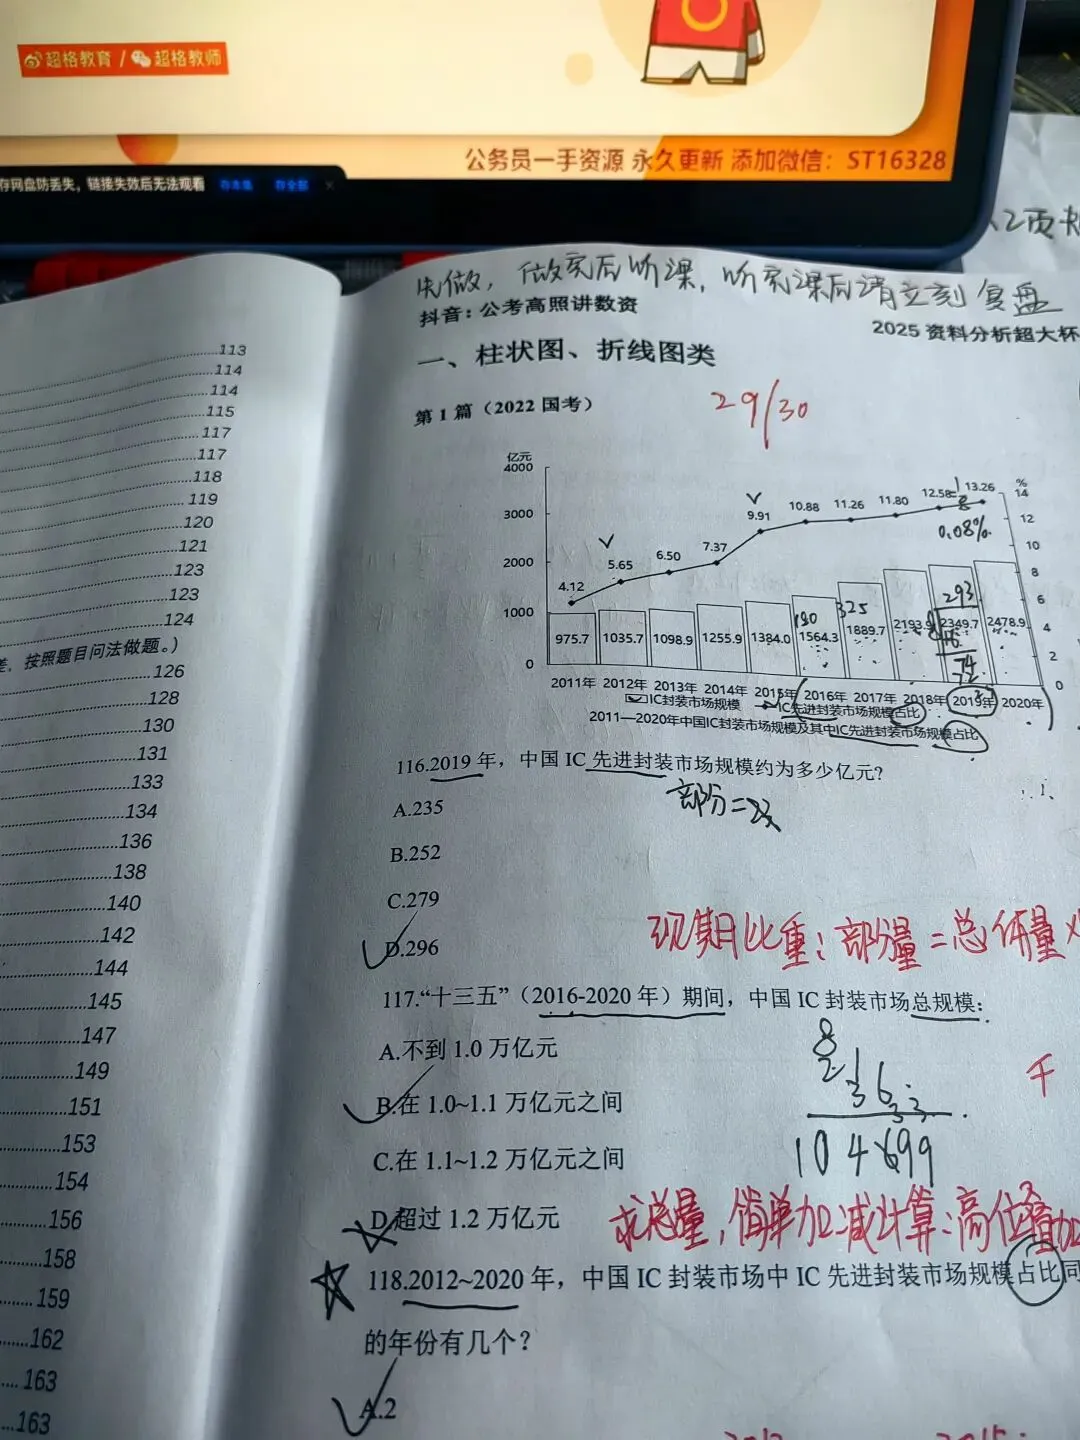 超格教育 / 超格教师
公务员一手资源 永久更新 添加微信：ST16328
存网盘防丢失，链接失效后无法观看
113
114
114
115
117
117
118
119
120
121
123
123
124
差，按照题目问法做题。）
126
128
130
131
133
134
136
138
140
142
144
145
147
149
151
153
154
156
158
159
162
163
163
先做，做完后听课，听完课后请立刻复盘
抖音：公考高照讲数资
2025 资料分析超大杯
一、柱状图、折线图类
第 1 篇（2022 国考）
29/30
亿元
%
4000
3000
2000
1000
0
14
12
10
8
6
4
2
0
4.12
5.65
6.50
7.37
9.91
10.88
11.26
11.80
12.58
13.26
0.08%
293
180
325
975.7
1035.7
1098.9
1255.9
1384.0
1564.3
1889.7
2193.9
2349.7
2478.9
2011年 2012年 2013年 2014年 2015年 2016年 2017年 2018年 2019年 2020年
IC封装市场规模 IC先进封装市场规模占比
2011—2020年中国IC封装市场规模及其中IC先进封装市场规模占比
116.2019 年，中国 IC 先进封装市场规模约为多少亿元？
部分=
A.235
B.252
C.279
D.296
现期比重：部分量=总体量
117.“十三五”（2016-2020 年）期间，中国 IC 封装市场总规模：
A.不到 1.0 万亿元
B.在 1.0~1.1 万亿元之间
C.在 1.1~1.2 万亿元之间
D.超过 1.2 万亿元
求总量，简单加减计算：高位叠加
118.2012~2020 年，中国 IC 封装市场中 IC 先进封装市场规模占比同
的年份有几个？
A.2